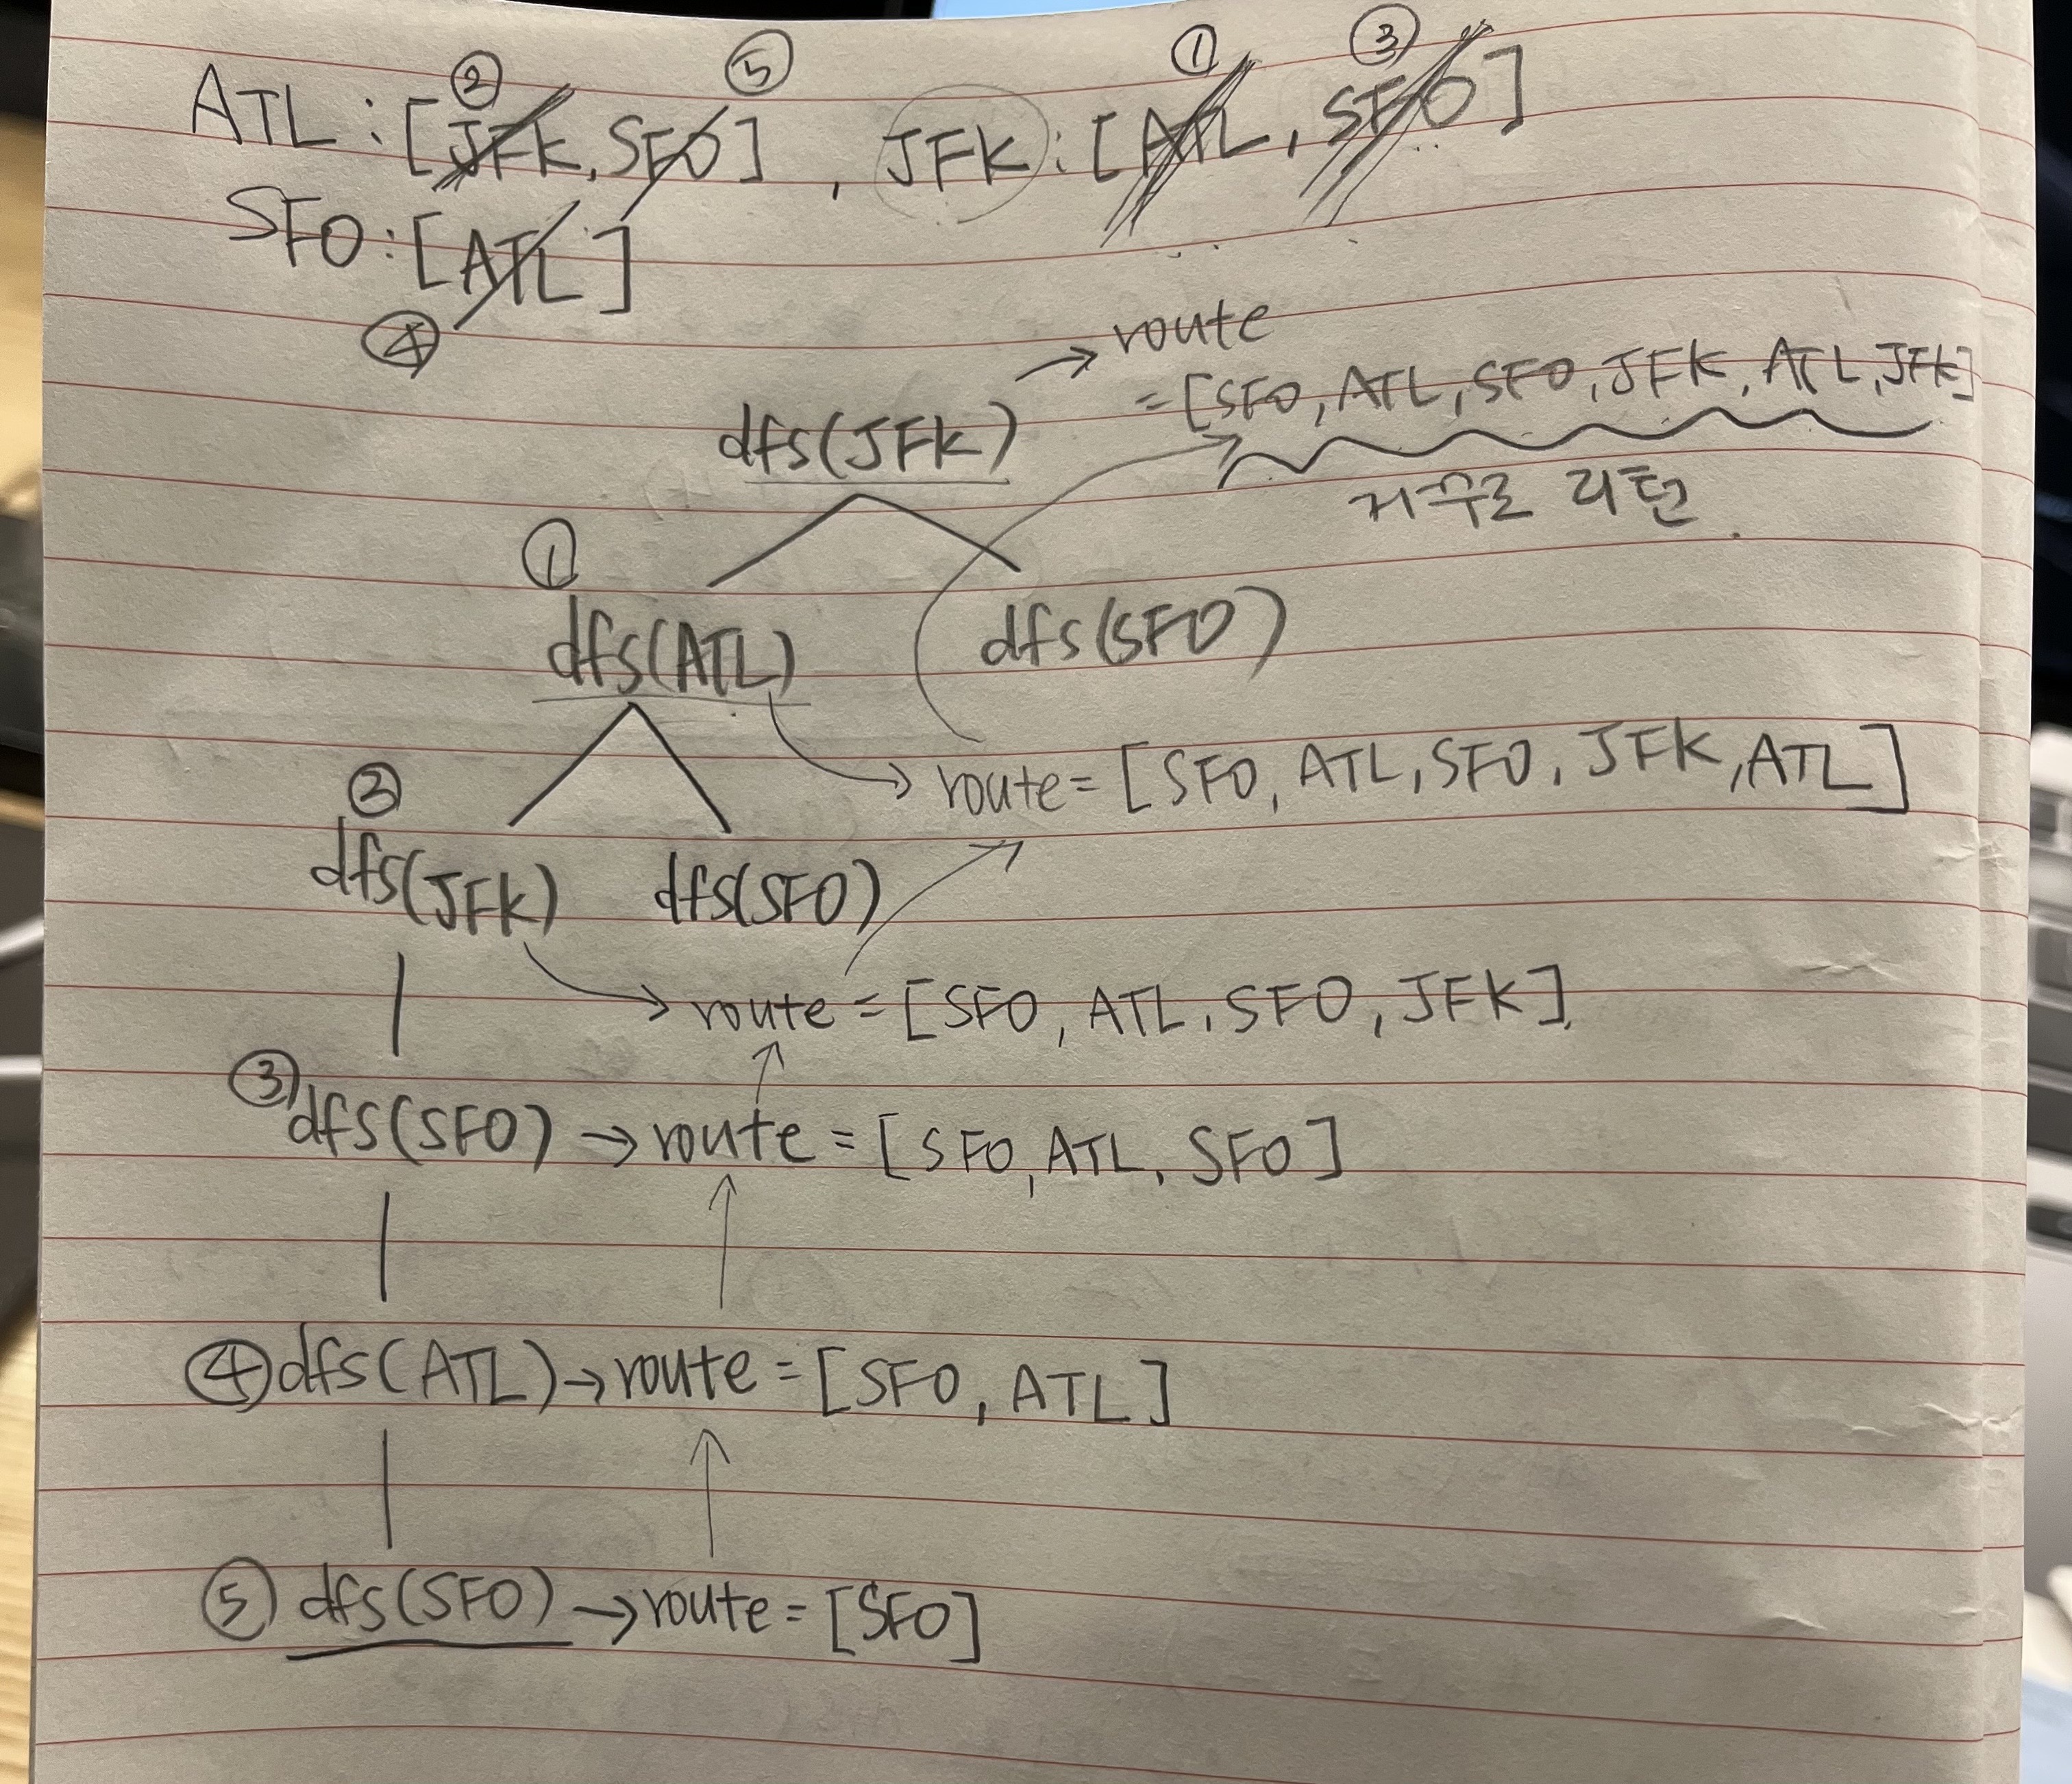 ② ⑤ ① ③
ATL : [JFK, SFO] , JFK : [ATL, SFO]
SFO : [ATL]
④
→ route
dfs(JFK) = [SFO, ATL, SFO, JFK, ATL, JFK]
거꾸로 리턴
①
dfs(ATL) dfs(SFO)
→ route = [SFO, ATL, SFO, JFK, ATL]
②
dfs(JFK) dfs(SFO)
→ route = [SFO, ATL, SFO, JFK]
③ dfs(SFO) → route = [SFO, ATL, SFO]
④ dfs(ATL) → route = [SFO, ATL]
⑤ dfs(SFO) → route = [SFO]